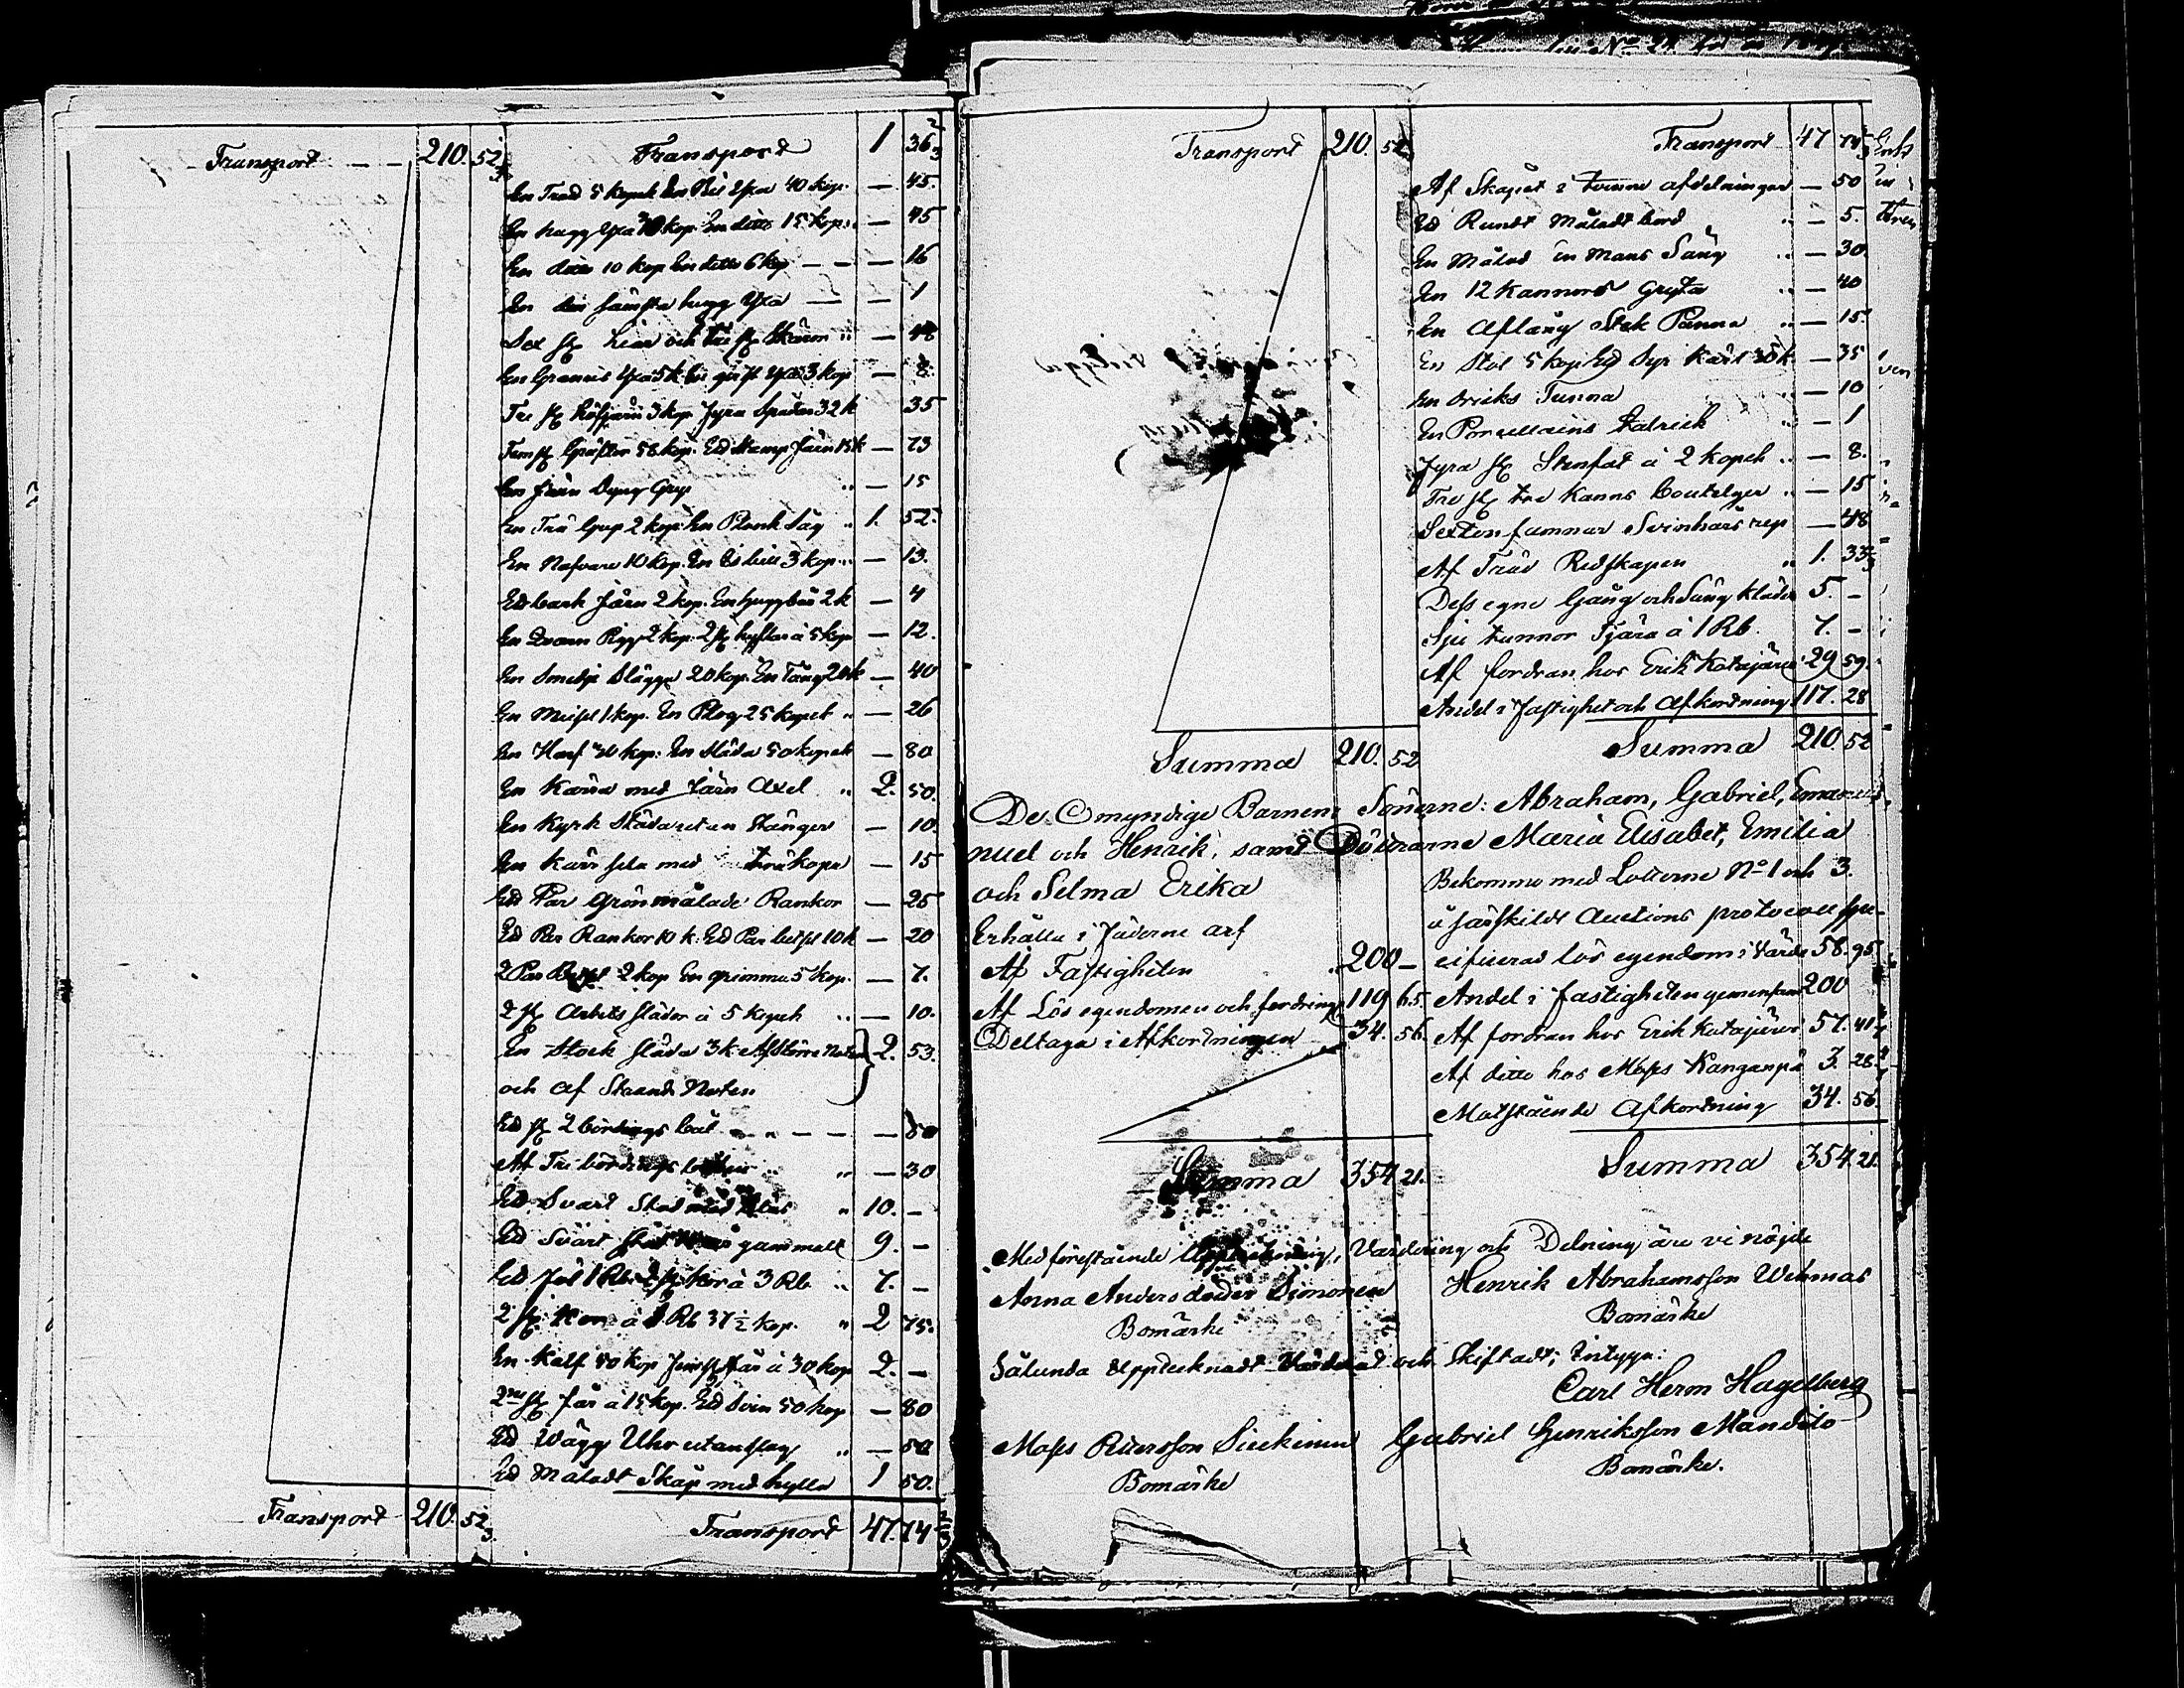 Transport — — 210. 52
Transport 1 36 2/3
En Trud 5 kopek En Bil Yxa 40 kop. — 45.
En hugg Yxa 30 kop. En ditto 15 kop. — 45
En ditto 10 kop En ditto 6 kop — — — 16
En hugg Yxa — — 1
Sex st Liar och tre st Skäror " — 48
En Yxa 5 k En Yxa 3 kop — 8.
Tre st 3 kop. Fyra Spadar 32 k 35
Fem st Gräftor 58 kop. Ett Stamp Järn 15 k — 73
En Järn Dyng Grep " — 15
En Trä Grep 2 kop. En Plank såg " 1. 52.
En Nafvare 10 kop. En Is bill 3 kop. — 13.
Ett bark Järn 2 kop. En 2 k — 4
En 2 kop. 2 st à 5 kop — 12.
En Smedje Slägga 20 kop. En Tång 20 k — 40
En Meisel 1 kop. En Plog 25 kopek " — 26
En Harf 30 kop. En släda 50 kopek — 80
En Kärra med Järn Axel " 2. 50.
En Kyrk Släda utan Stänger — 10
En Kärr sela med — 15
Ett Par Grön målade Rankor — 25
Ett Par Rankor 10 k. Ett Par betsel 10 k — 20
2 Par Betsel 2 kop En grimma 5 kop. — 7.
2 st Arbets slädor à 5 kopek " — 10.
En Stock släda 3 k. Af Större Noten } 2. 53.
och af Strand Noten
Ett st 2 bördings båt — — — — 80
Af Tre bördings båten " — 30
Ett Svart Sto " 10. —
Ett Svart gammalt 9. —
Ett Föl 1 Rb. 2 st Kor à 3 Rb " 7. —
2 st à 1 Rb 37 1/2 kop. " 2 75.
En Kalf 50 kop Fem st får à 30 kop 2. —
2 st får à 15 kop. Ett Svin 50 kop — 80
Ett Wägg Uhr utan slag " — 50
Ett Måladt Skåp med hylla 1 50.
Transport 210. 52
Transport 47. 74
Transport 210. 52
Transport 47 74
Af Skåpet i tvenne afdelningar — 50
Ett Rundt Måladt bord " — 5.
En Målad en Mans Säng " — 30.
En 12 Kannors Gryta " — 40
En Aflång Stek Panna " — 15.
En Stol 5 kop Ett Syr Kärl 30 k — 35
En Dricks Tunna " — 10
En Porcellains Talrick " — 1
Fyra st Stenfat à 2 kopek " — 8.
Tre st tre Kanns bouteljer " — 15
Sexton famnar Svinhårs rep — 48
Af Träd Redskapen " 1. 33
Dess egne Gång och Säng kläder 5. —
Sju tunnor Tjära à 1 Rb. 7. —
Af fordran hos Erik Katajärvi 29 59.
Andel i Fastighet och Afkortning 117. 28
Summa 210. 52
Summa 210. 52
De Omyndige Barnen: Sönerne: Abraham, Gabriel, Ema-
nuel och Henrik, samt Döttrarne Maria Elisabet, Emilia
och Selma Erika
Erhålla i Fäderne arf
Af Fastigheten 200 —
Af Lös egendomen och fordringe 119 65.
Deltaga i Afkortningen 34. 56.
Summa 354 21.
Bekomma med Lotterne No 1 och 3.
i särskildt Auctions protocoll spe-
cificerad lös egendom i värde 58. 95
Andel i fastigheten gemensamt 200
Af fordran hos Erik Katajärvi 57. 41
Af ditto hos Moses Kanganpä 3. 28
Motstående Afkortning 34. 56.
Summa 354. 21.
Med förestående Uppteckning, Värdering och Delning äre vi nöjde
Anna Andersdotter Simonen Henrik Abrahamsson Wehmas
Bomärke Bomärke
Sålunda Upptecknadt Värderat och Skiftadt; Intyga:
Carl Herm Hagelberg
Moses Pettersson Sieckinen Gabriel Henriksson Mandelo
Bomärke Bomärke.